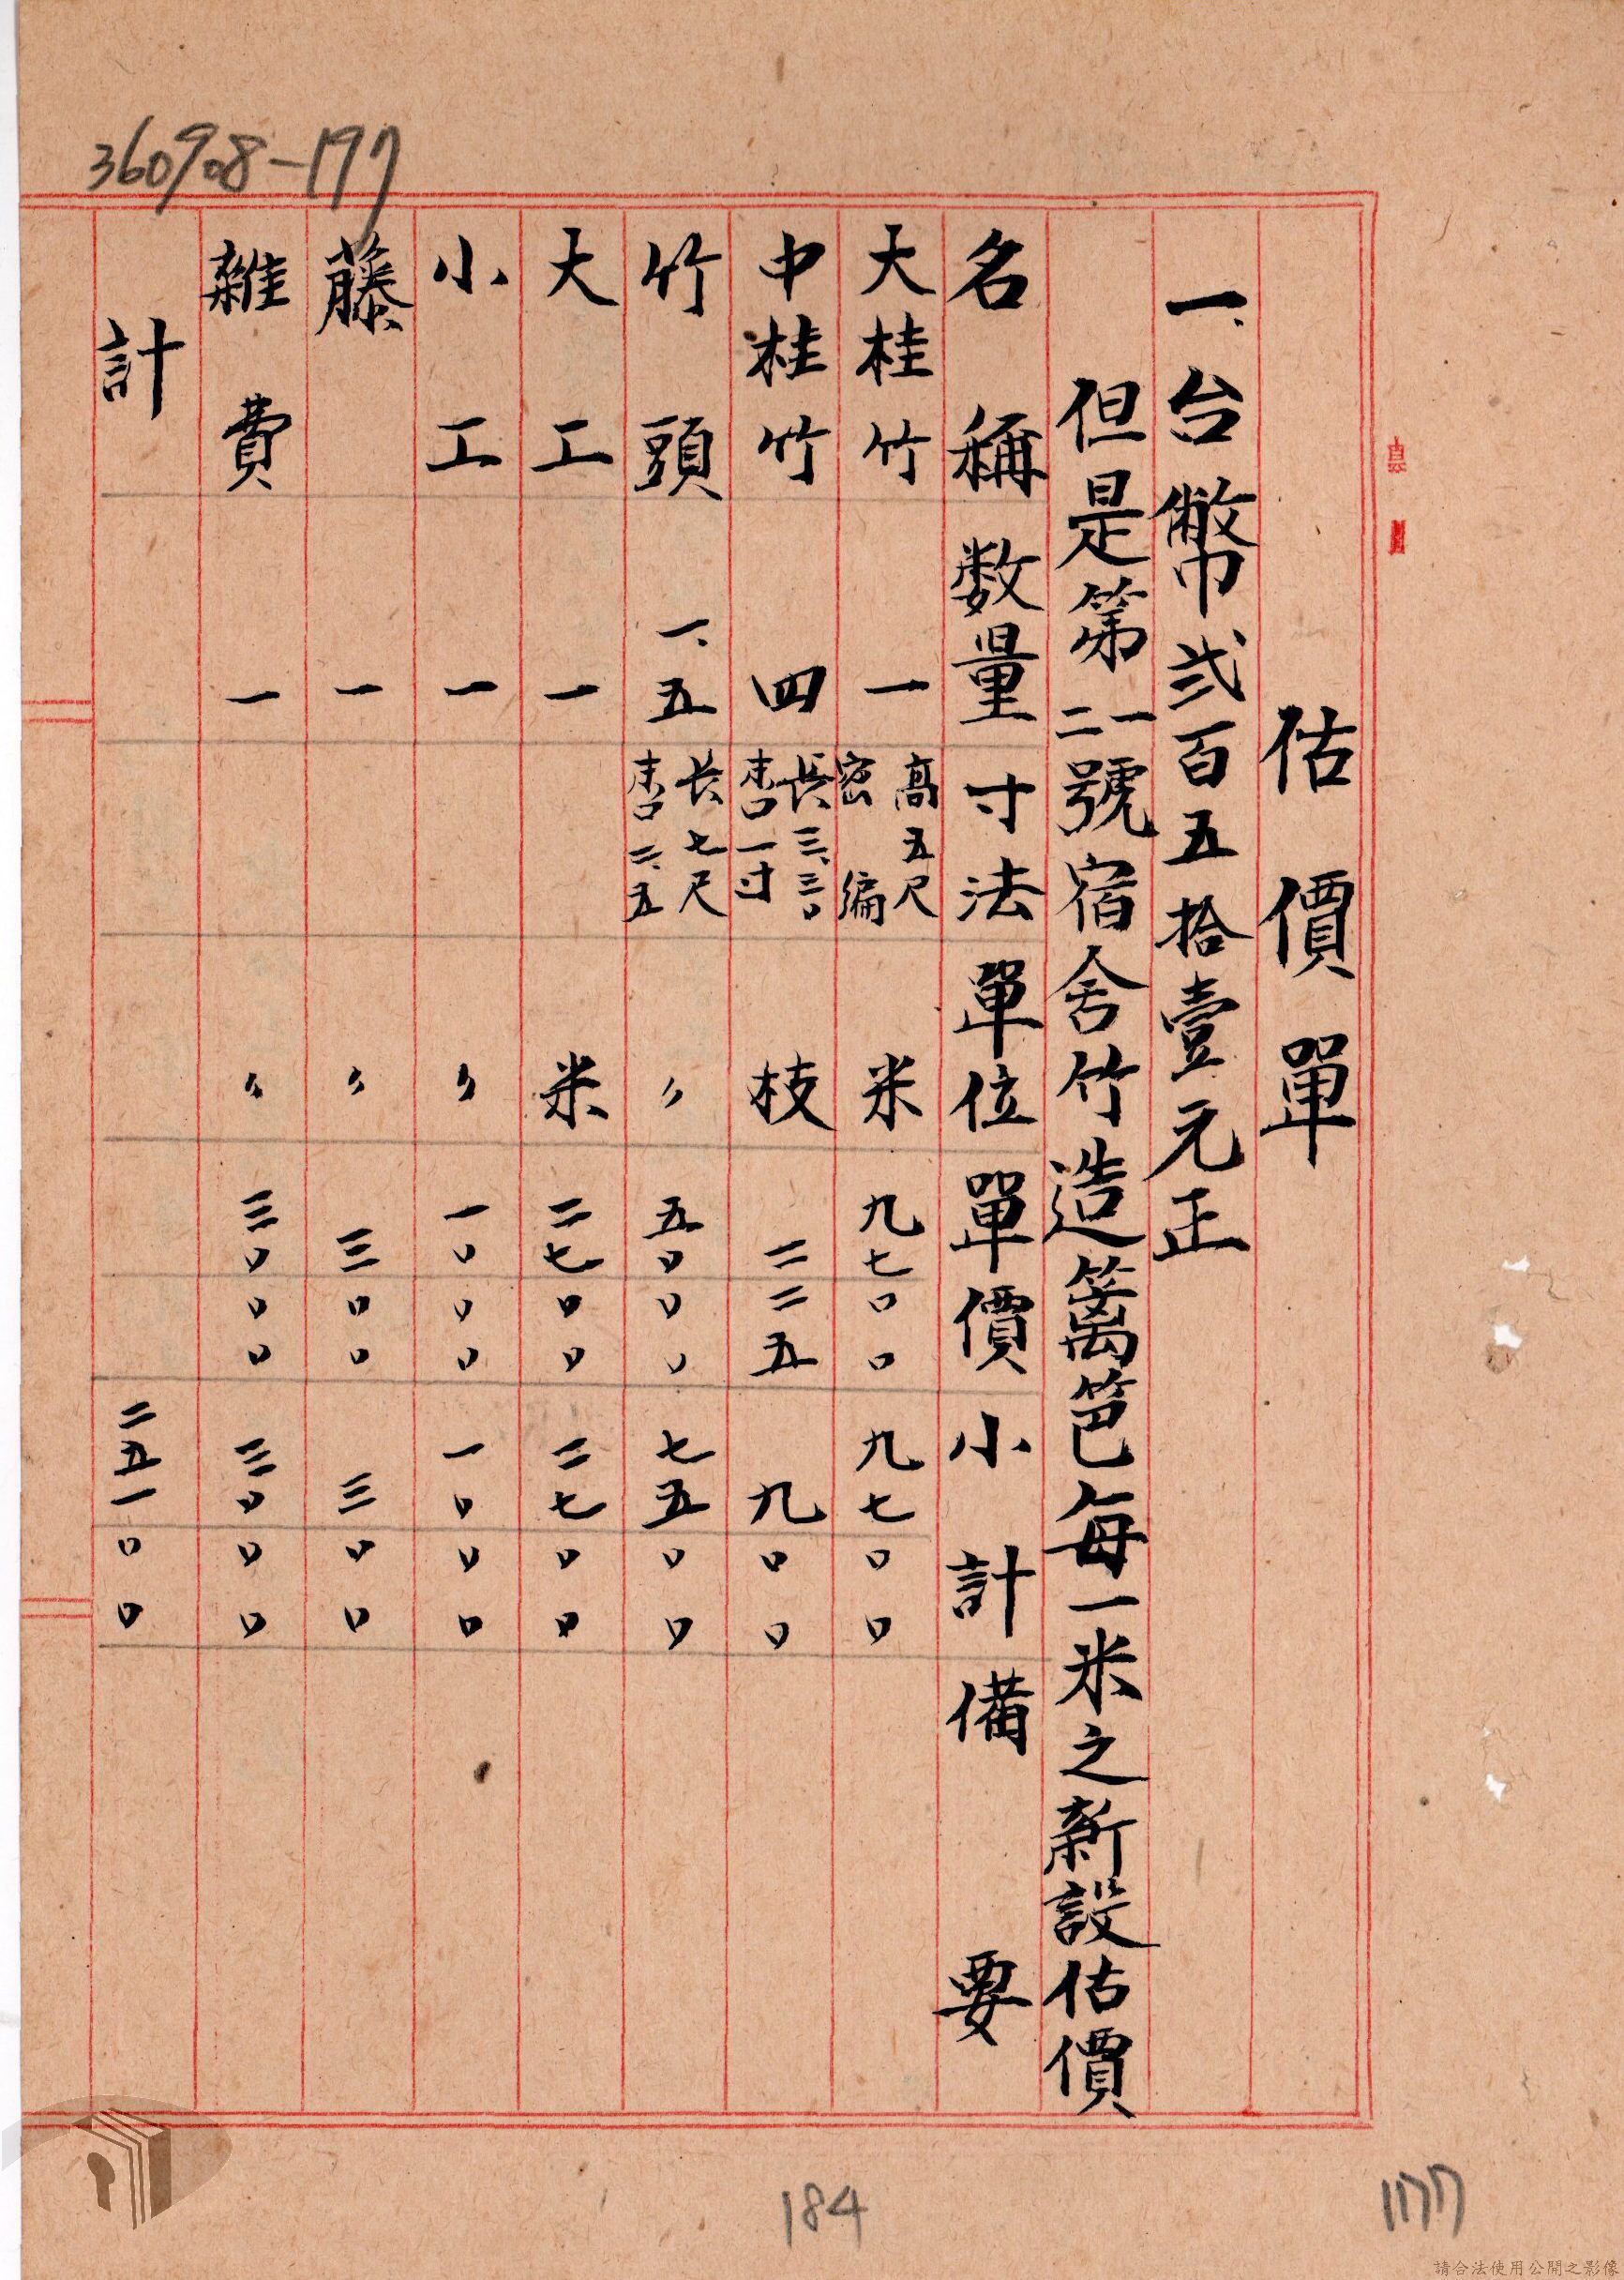 360908-197
估價單
一、台幣弍百五拾壹元正
但是第一二號宿舍竹造篱笆每一米之新設估價
名稱 数量 寸法 單位 單價 小計 備要
大桂竹 一 高五尺 密編 米 九七〇〇 九七〇〇
中桂竹 四 長三、三〇 末口一寸 枝 二二五 九〇〇
竹頭 一、五 長七尺 末口二、五 〃 五〇〇〇 七五〇〇
大工 一 米 二七〇〇 二七〇〇
小工 一 〃 一〇〇〇 一〇〇〇
藤 一 〃 三〇〇 三〇〇
雜費 一 〃 三〇〇〇 三〇〇〇
計 二五一〇〇
184
177
請合法使用公開之影像